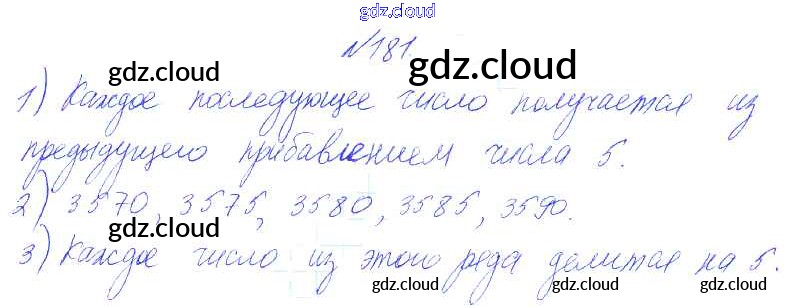 gdz.cloud
№181.
gdz.cloud gdz.cloud
1) Каждое последующее число получается из
предыдущего прибавлением числа 5.
gdz.cloud gdz.cloud
2) 3570, 3575, 3580, 3585, 3590.
gdz.cloud gdz.cloud
3) Каждое число из этого ряда делится на 5.
gdz.cloud gdz.cloud
gdz.cloud